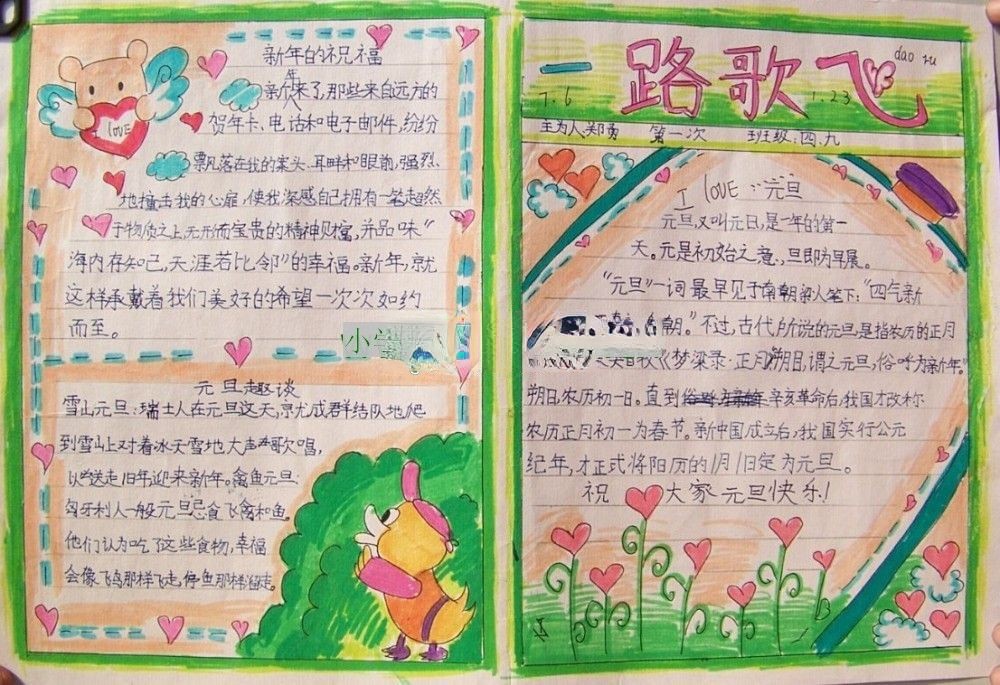 新年的祝福
新年来了,那些来自远方的
贺年卡、电话和电子邮件,纷纷
飘落在我的案头、耳畔和眼前,强烈
地撞击我的心扉,使我深感自己拥有一笔超然
于物质之上,无形而宝贵的精神财富,并品味“
海内存知己,天涯若比邻”的幸福。新年,就
这样承载着我们美好的希望一次次如约
而至。
love
小学
元旦趣谈
雪山元旦:瑞士人在元旦这天,成群结队地爬
到雪山上对着冰天雪地大声歌唱,
以送走旧年迎来新年。禽鱼元旦:
匈牙利人一般元旦忌食飞禽和鱼。
他们认为吃了这些食物,幸福
会像飞鸟那样飞走,像鱼那样溜走。
一路歌飞
dao
7.6
1.23
主为人:郑 第一次 班级:四.九
I love:元旦
元旦,又叫元日,是一年的第一
天。元是初始之意,旦即为早晨。
“元旦”一词最早见于南朝梁人笔下:“四气新
朝。”不过,古代所说的元旦,是指农历的正月
《梦梁录·正月》朔日,谓之元旦,俗呼为新年。”
朔日,农历初一日。直到辛亥革命后,我国才改称
农历正月初一为春节。新中国成立后,我国实行公元
纪年,才正式将阳历的1月1日定为元旦。
祝大家元旦快乐!